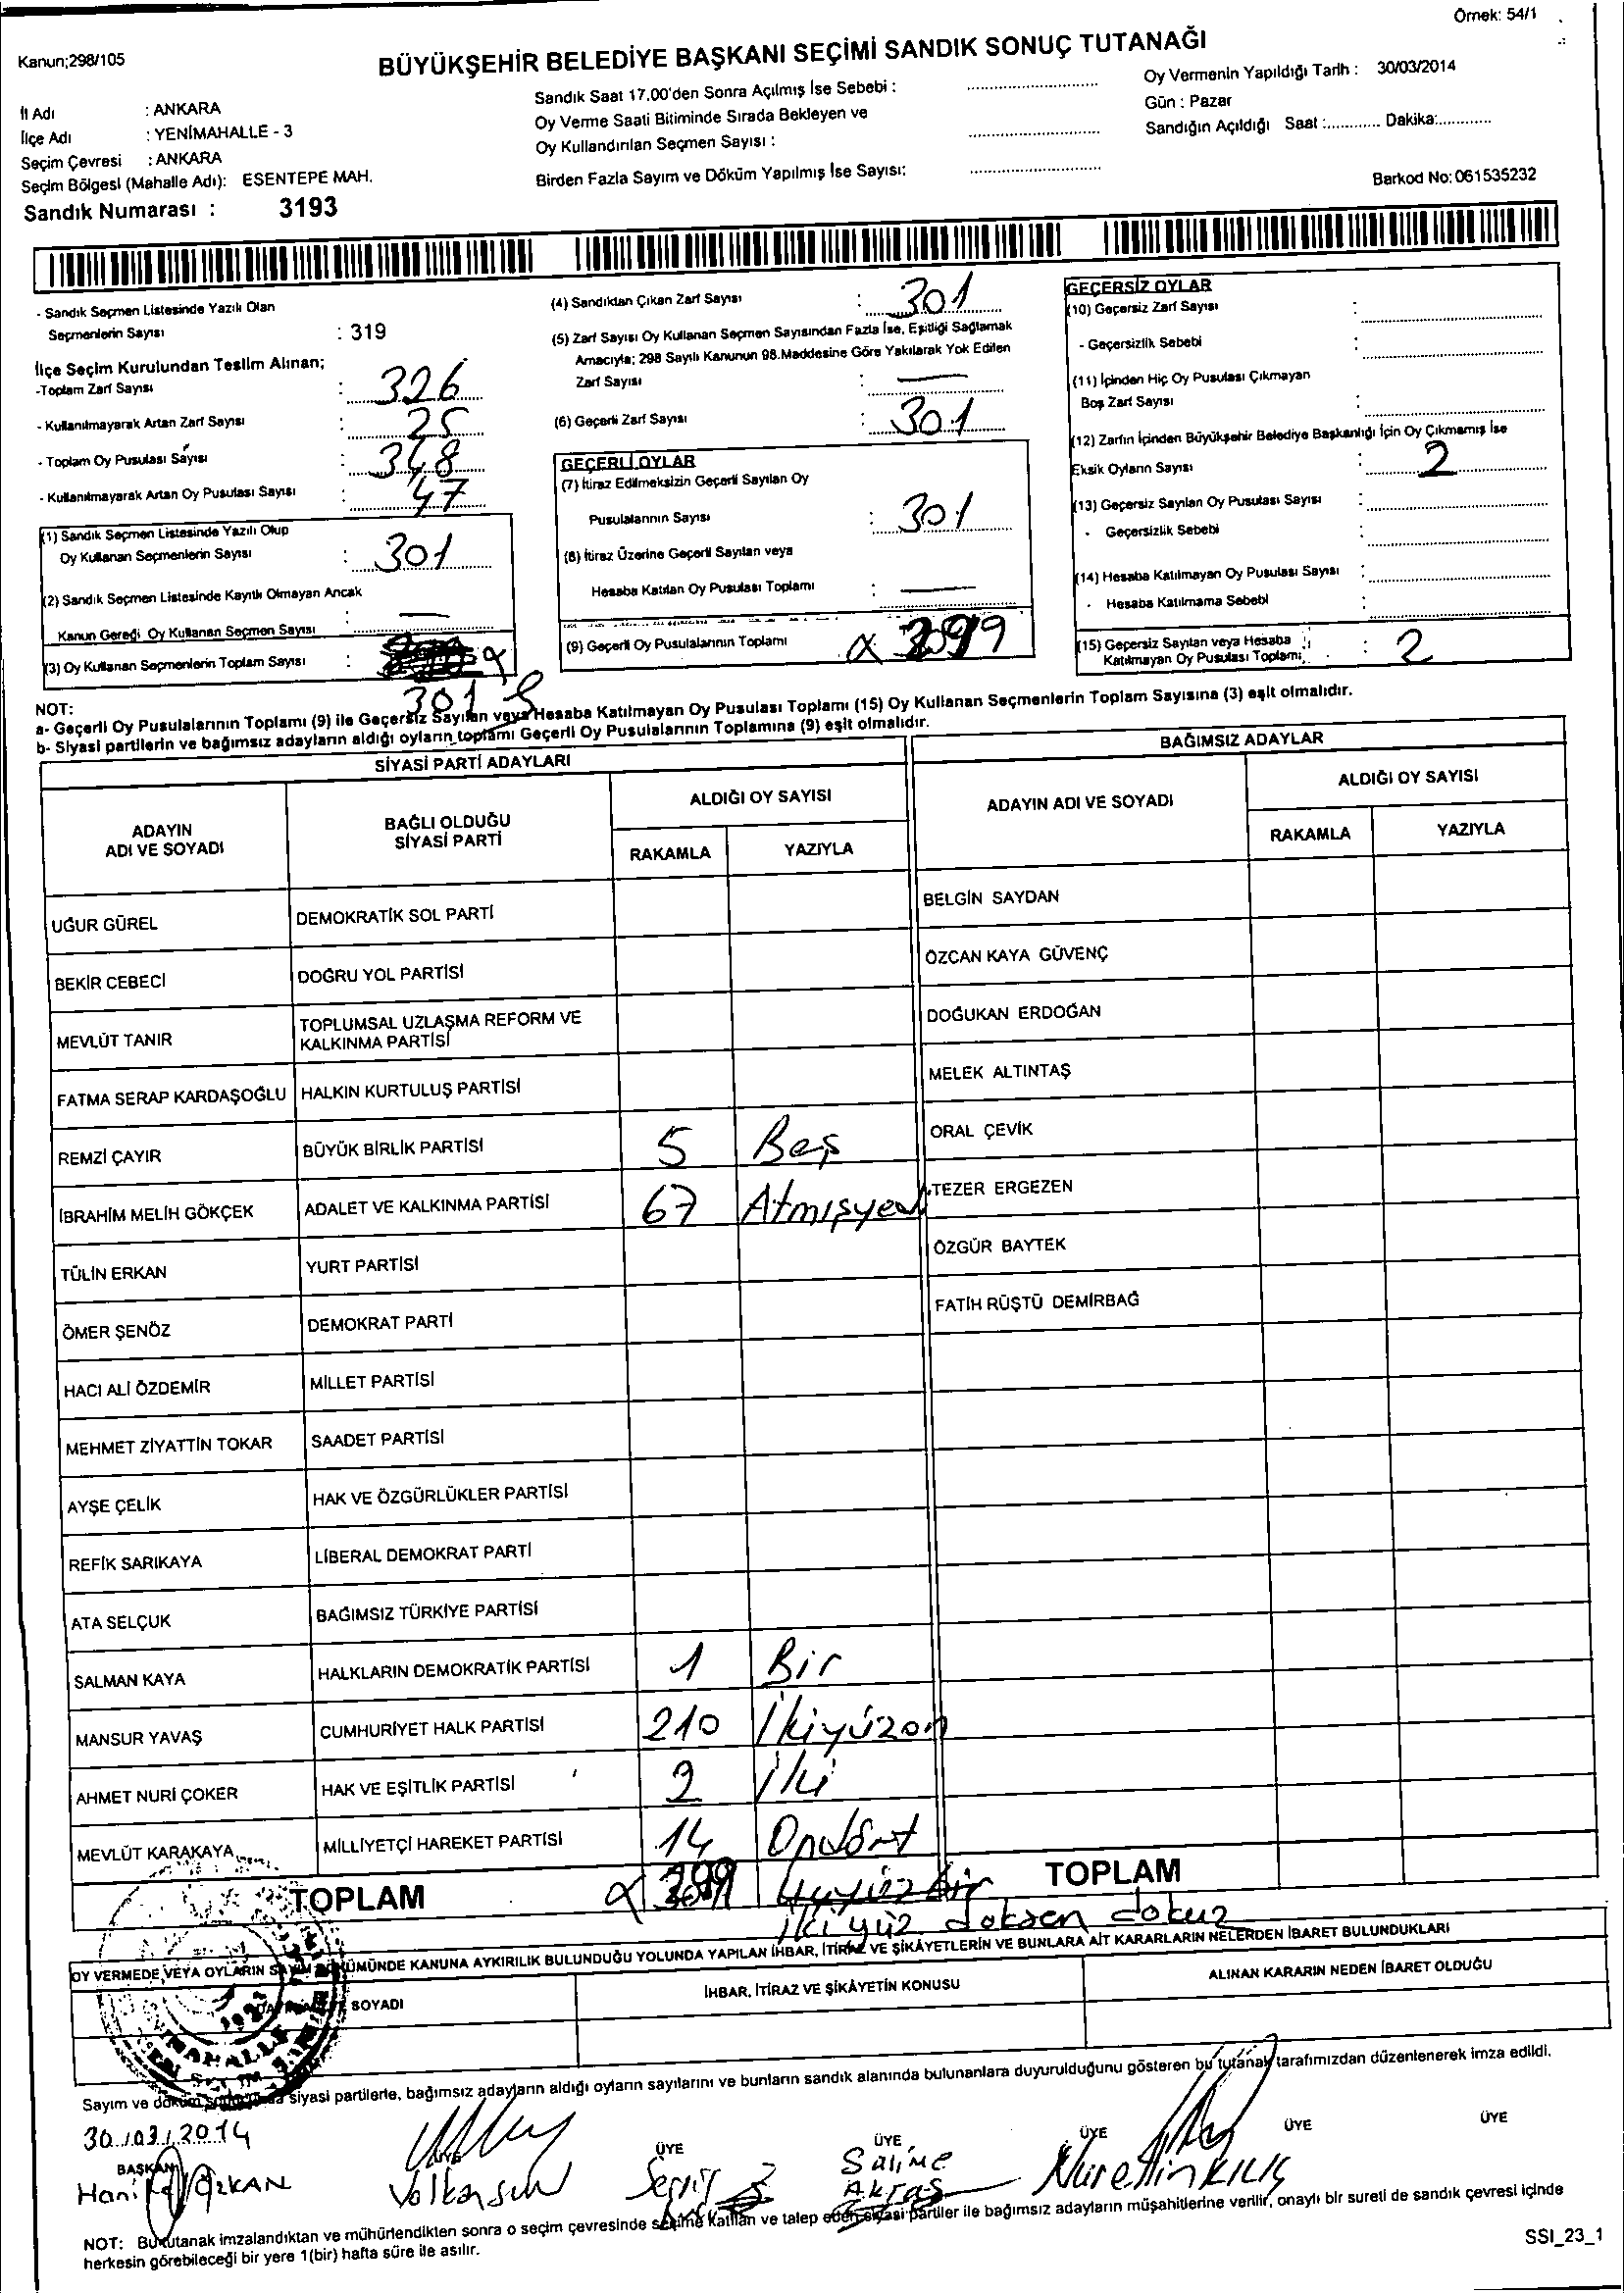 Örnek: 54/1
Kanun;298/105
BÜYÜKŞEHİR BELEDİYE BAŞKANI SEÇİMİ SANDIK SONUÇ TUTANAĞI
İl Adı : ANKARA
İlçe Adı : YENİMAHALLE - 3
Seçim Çevresi : ANKARA
Seçim Bölgesi (Mahalle Adı): ESENTEPE MAH.
Sandık Numarası : 3193
Sandık Saat 17.00'den Sonra Açılmış İse Sebebi :
Oy Verme Saati Bitiminde Sırada Bekleyen ve
Oy Kullandırılan Seçmen Sayısı :
Birden Fazla Sayım ve Döküm Yapılmış İse Sayısı:
Oy Vermenin Yapıldığı Tarih : 30/03/2014
Gün : Pazar
Sandığın Açıldığı Saat :............ Dakika:............
Barkod No: 061535232
- Sandık Seçmen Listesinde Yazılı Olan
Seçmenlerin Sayısı : 319
İlçe Seçim Kurulundan Teslim Alınan;
-Toplam Zarf Sayısı : 326
- Kullanılmayarak Artan Zarf Sayısı : 25
- Toplam Oy Pusulası Sayısı : 348
- Kullanılmayarak Artan Oy Pusulası Sayısı : 47
(1) Sandık Seçmen Listesinde Yazılı Olup
Oy Kullanan Seçmenlerin Sayısı : 301
(2) Sandık Seçmen Listesinde Kayıtlı Olmayan Ancak
Kanun Gereği Oy Kullanan Seçmen Sayısı : —
(3) Oy Kullanan Seçmenlerin Toplam Sayısı :
301
(4) Sandıktan Çıkan Zarf Sayısı : 301
(5) Zarf Sayısı Oy Kullanan Seçmen Sayısından Fazla İse, Eşitliği Sağlamak
Amacıyla; 298 Sayılı Kanunun 98.Maddesine Göre Yakılarak Yok Edilen
Zarf Sayısı : —
(6) Geçerli Zarf Sayısı : 301
GEÇERLİ OYLAR
(7) İtiraz Edilmeksizin Geçerli Sayılan Oy
Pusulalarının Sayısı : 301
(8) İtiraz Üzerine Geçerli Sayılan veya
Hesaba Katılan Oy Pusulası Toplamı : —
(9) Geçerli Oy Pusulalarının Toplamı
GEÇERSİZ OYLAR
(10) Geçersiz Zarf Sayısı :
- Geçersizlik Sebebi :
(11) İçinden Hiç Oy Pusulası Çıkmayan
Boş Zarf Sayısı :
(12) Zarfın İçinden Büyükşehir Belediye Başkanlığı İçin Oy Çıkmamış İse
Eksik Oyların Sayısı : 2
(13) Geçersiz Sayılan Oy Pusulası Sayısı :
- Geçersizlik Sebebi :
(14) Hesaba Katılmayan Oy Pusulası Sayısı :
- Hesaba Katılmama Sebebi :
(15) Geçersiz Sayılan veya Hesaba
Katılmayan Oy Pusulası Toplamı; : 2
NOT:
a- Geçerli Oy Pusulalarının Toplamı (9) ile Geçersiz Sayılan veya Hesaba Katılmayan Oy Pusulası Toplamı (15) Oy Kullanan Seçmenlerin Toplam Sayısına (3) eşit olmalıdır.
b- Siyasi partilerin ve bağımsız adayların aldığı oyların toplamı Geçerli Oy Pusulalarının Toplamına (9) eşit olmalıdır.
SİYASİ PARTİ ADAYLARI
BAĞIMSIZ ADAYLAR
ADAYIN ADI VE SOYADI
BAĞLI OLDUĞU SİYASİ PARTİ
ALDIĞI OY SAYISI
RAKAMLA YAZIYLA
ADAYIN ADI VE SOYADI
ALDIĞI OY SAYISI
RAKAMLA YAZIYLA
UĞUR GÜREL DEMOKRATİK SOL PARTİ
BEKİR CEBECİ DOĞRU YOL PARTİSİ
MEVLÜT TANIR TOPLUMSAL UZLAŞMA REFORM VE
KALKINMA PARTİSİ
FATMA SERAP KARDAŞOĞLU HALKIN KURTULUŞ PARTİSİ
REMZİ ÇAYIR BÜYÜK BİRLİK PARTİSİ 5 Beş
İBRAHİM MELİH GÖKÇEK ADALET VE KALKINMA PARTİSİ 67 Atmışyedi
TÜLİN ERKAN YURT PARTİSİ
ÖMER ŞENÖZ DEMOKRAT PARTİ
HACI ALİ ÖZDEMİR MİLLET PARTİSİ
MEHMET ZİYATTİN TOKAR SAADET PARTİSİ
AYŞE ÇELİK HAK VE ÖZGÜRLÜKLER PARTİSİ
REFİK SARIKAYA LİBERAL DEMOKRAT PARTİ
ATA SELÇUK BAĞIMSIZ TÜRKİYE PARTİSİ
SALMAN KAYA HALKLARIN DEMOKRATİK PARTİSİ 1 Bir
MANSUR YAVAŞ CUMHURİYET HALK PARTİSİ 210 İkiyüzon
AHMET NURİ ÇOKER HAK VE EŞİTLİK PARTİSİ 2 İki
MEVLÜT KARAKAYA MİLLİYETÇİ HAREKET PARTİSİ 14 Ondört
BELGİN SAYDAN
ÖZCAN KAYA GÜVENÇ
DOĞUKAN ERDOĞAN
MELEK ALTINTAŞ
ORAL ÇEVİK
TEZER ERGEZEN
ÖZGÜR BAYTEK
FATİH RÜŞTÜ DEMİRBAĞ
TOPLAM Üçyüz bir TOPLAM
iki yüz doksan dokuz
OY VERMEDE VEYA OYLARIN SAYIM DÖKÜMÜNDE KANUNA AYKIRILIK BULUNDUĞU YOLUNDA YAPILAN İHBAR, İTİRAZ VE ŞİKÂYETLERİN VE BUNLARA AİT KARARLARIN NELERDEN İBARET BULUNDUKLARI
SOYADI İHBAR, İTİRAZ VE ŞİKÂYETİN KONUSU ALINAN KARARIN NEDEN İBARET OLDUĞU
Sayım ve döküm siyasi partilerle, bağımsız adayların aldığı oyların sayılarını ve bunların sandık alanında bulunanlara duyurulduğunu gösteren bu tutanak tarafımızdan düzenlenerek imza edildi.
30/03/2014
BAŞKAN ÜYE ÜYE ÜYE ÜYE ÜYE
Volkan Salime Akraş Nurettin KILIÇ
NOT: Bu tutanak imzalandıktan ve mühürlendikten sonra o seçim çevresinde seçime katılan ve talep eden siyasi partiler ile bağımsız adayların müşahitlerine verilir, onaylı bir sureti de sandık çevresi içinde
herkesin görebileceği bir yere 1(bir) hafta süre ile asılır.
SSI_23_1